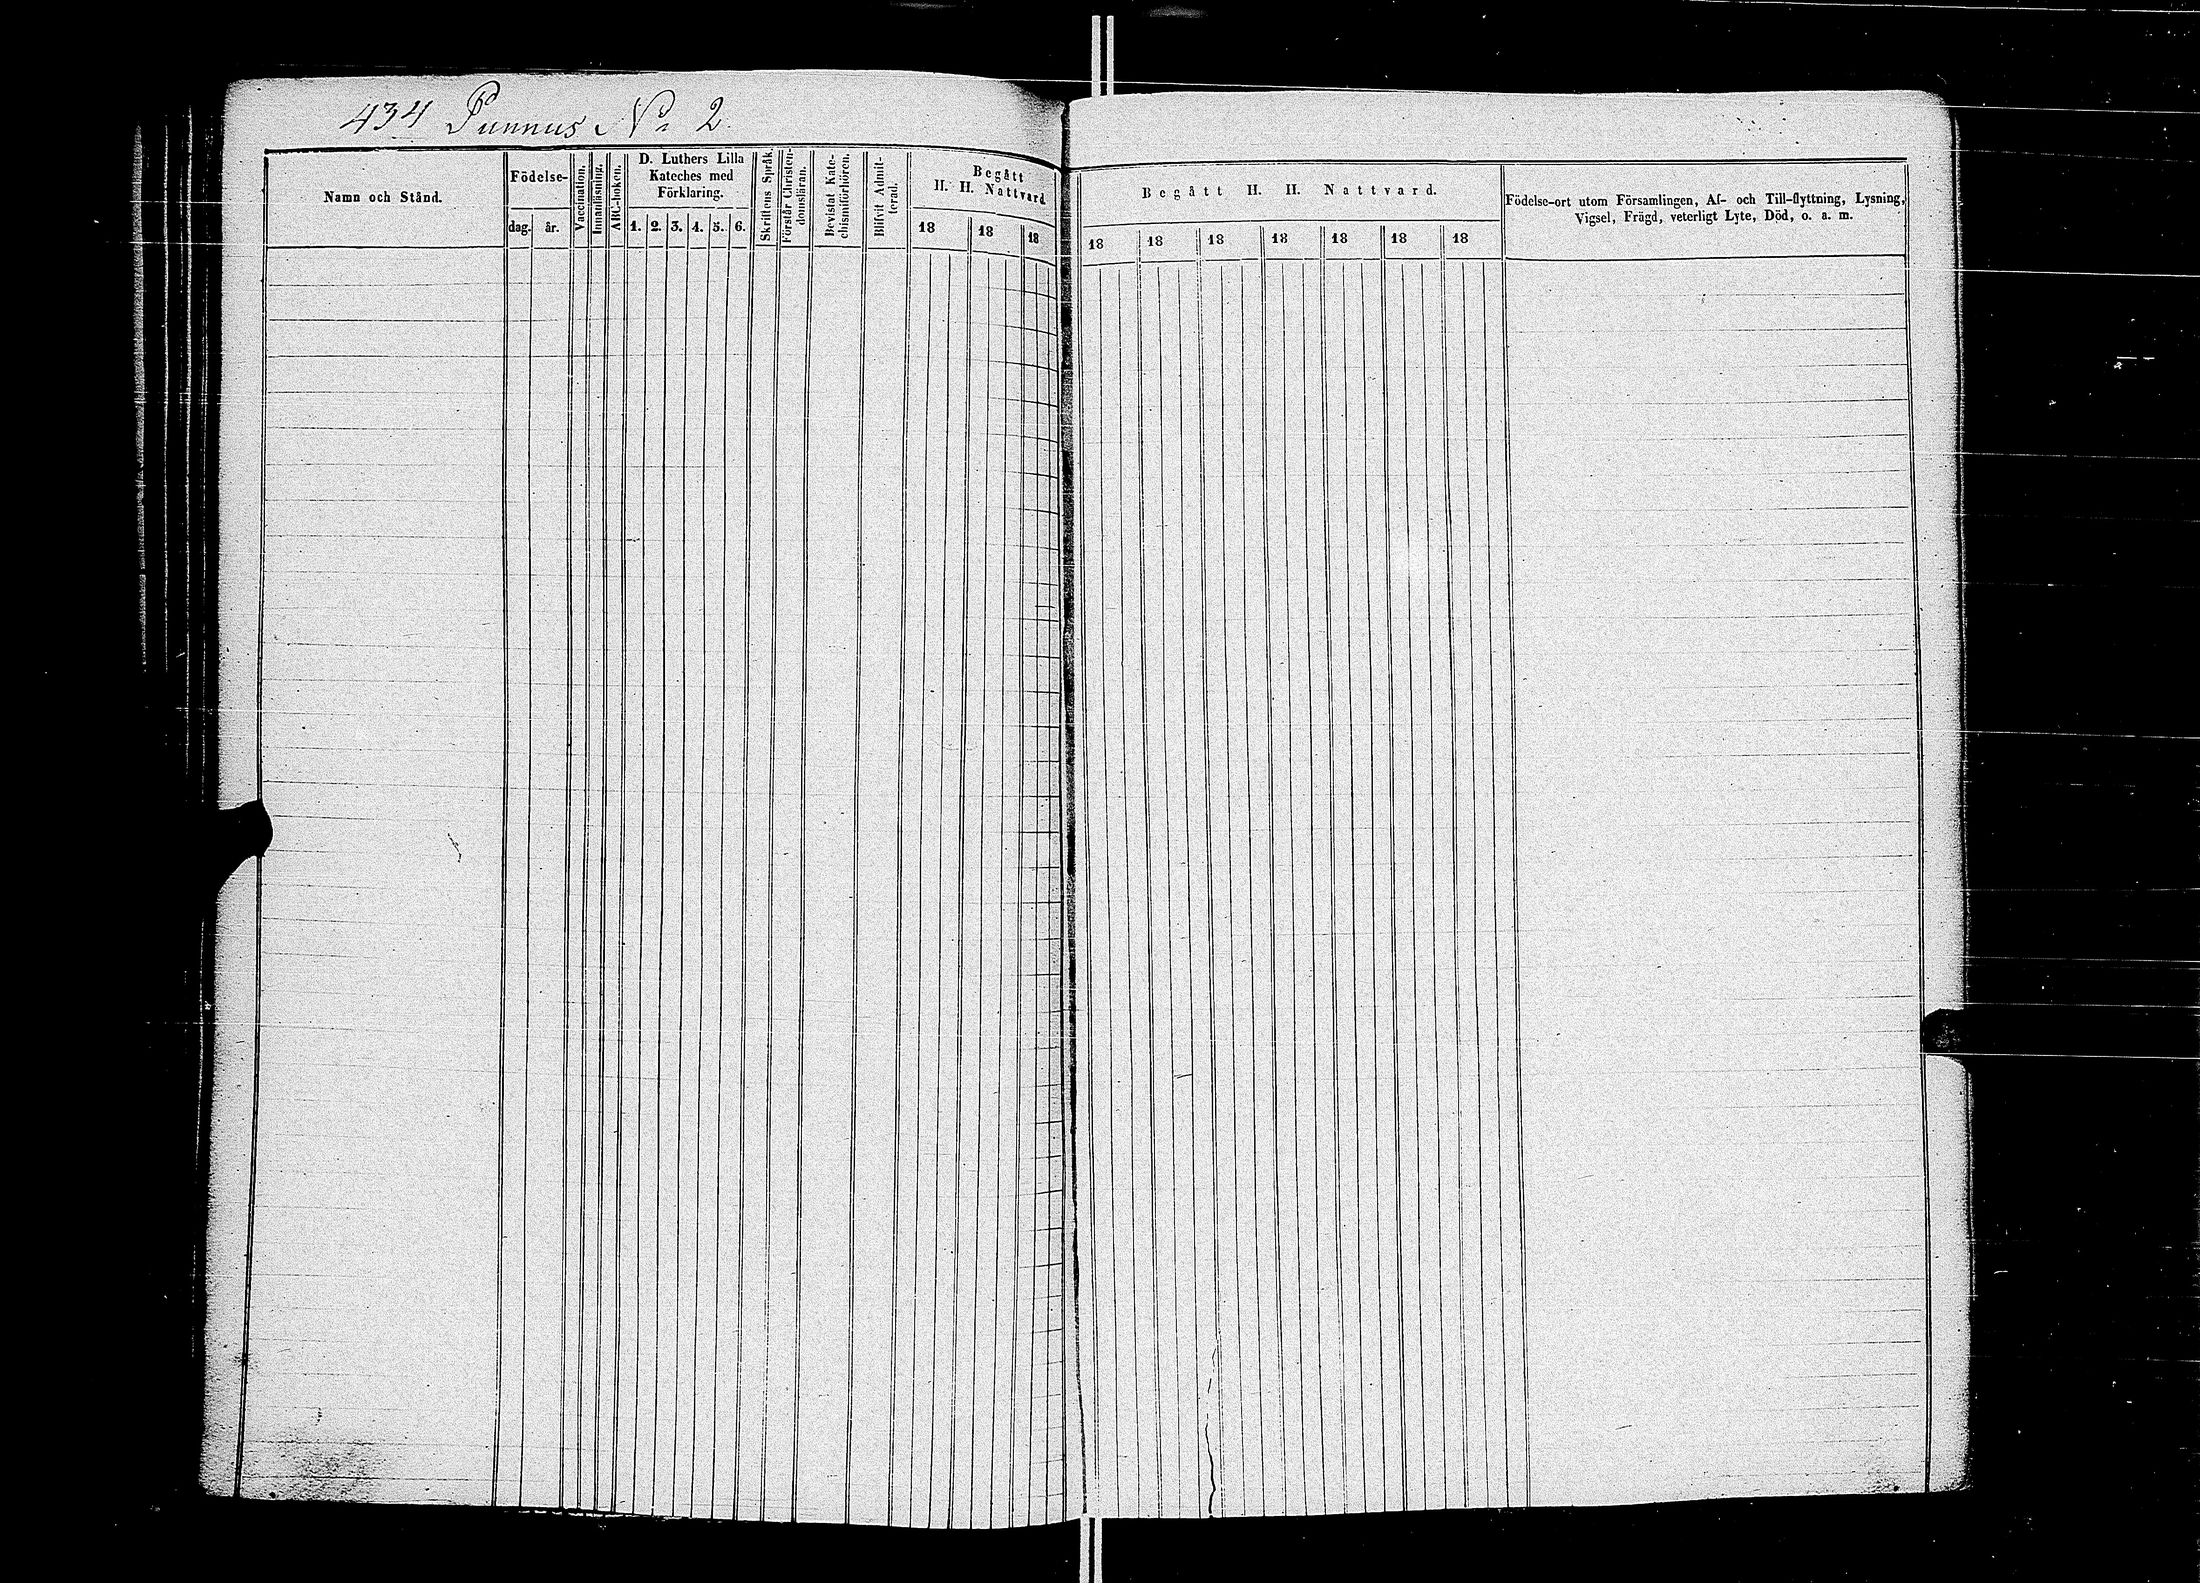 434 Punnus No 2.
Namn och Stånd.
Födelse-
dag.
år.
Vaccination.
Innanläsning.
ABC-boken.
D. Luthers Lilla
Kateches med
Förklaring.
1. 2. 3. 4. 5. 6.
Skriftens Språk.
Förstår Christen-
domsläran.
Bevistat Kate-
chismiförhören.
Blifvit Admit-
terad.
Begått
H. H. Nattvard
18 18 18
Begått H. H. Nattvard.
18 18 18 18 18 18 18
Födelse-ort utom Församlingen, Af- och Till-flyttning, Lysning,
Vigsel, Frägd, veterligt Lyte, Död, o. a. m.